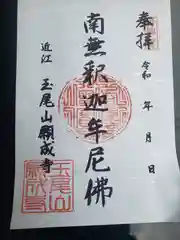 奉拝
令和 年 月 日
南無釈迦牟尼佛
近江 玉尾山願成寺